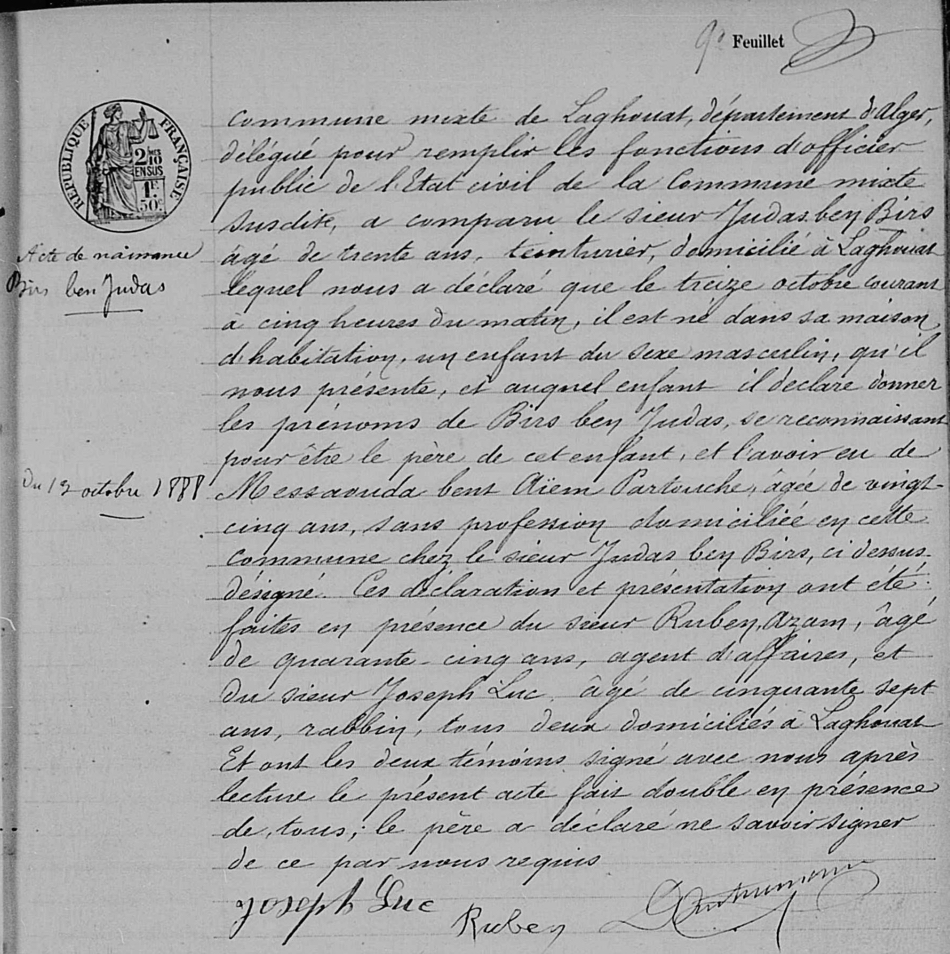 9e Feuillet
RÉPUBLIQUE FRANÇAISE
2 10mes
EN SUS
1F
50c
commune mixte de Laghouat, département d'Alger,
délégué pour remplir les fonctions d'officier
public de l'Etat civil de la Commune mixte
susdite, a comparu le sieur Judas ben Birs
âgé de trente ans, teinturier, domicilié à Laghouat
lequel nous a déclaré que le treize octobre courant
à cinq heures du matin, il est né dans sa maison
d'habitation, un enfant du sexe masculin, qu'il
nous présente, et auquel enfant il déclare donner
les prénoms de Birs ben Judas, se reconnaissant
pour être le père de cet enfant, et l'avoir eu de
Messaouda bent Aïem Partouche, âgée de vingt-
cinq ans, sans profession domiciliée en cette
commune chez le sieur Judas ben Birs, ci dessus
désigné. Ces déclaration et présentation ont été
faites en présence du sieur Ruben, Azam, âgé
de quarante-cinq ans, agent d'affaires, et
du sieur Joseph Luc âgé de cinquante sept
ans, rabbin, tous deux domiciliés à Laghouat
Et ont les deux témoins signé avec nous après
lecture le présent acte fait double en présence
de tous, le père a déclaré ne savoir signer
de ce par nous requis
Acte de naissance
Birs ben Judas
Du 13 octobre 1888
Joseph Luc
Ruben